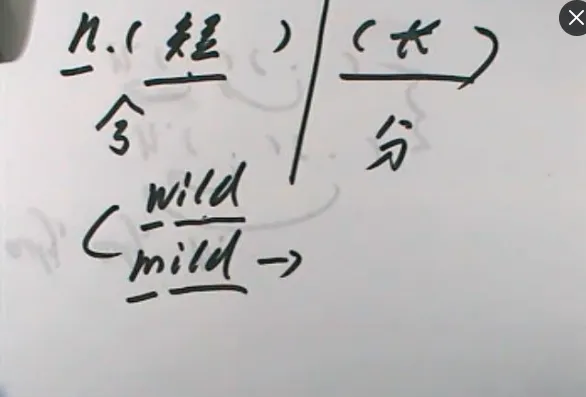 n.(短) (长)
合 分
wild
mild →